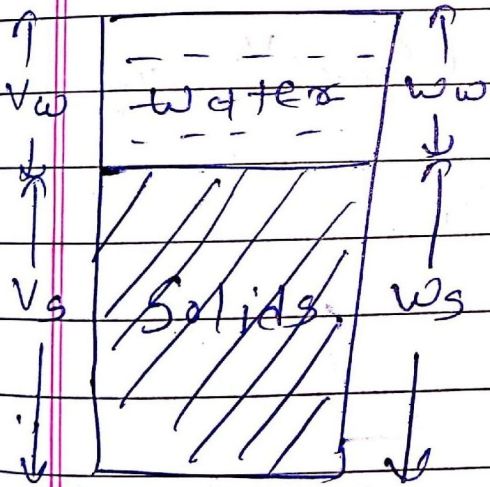 Vw Water Ww
Vs Solids Ws